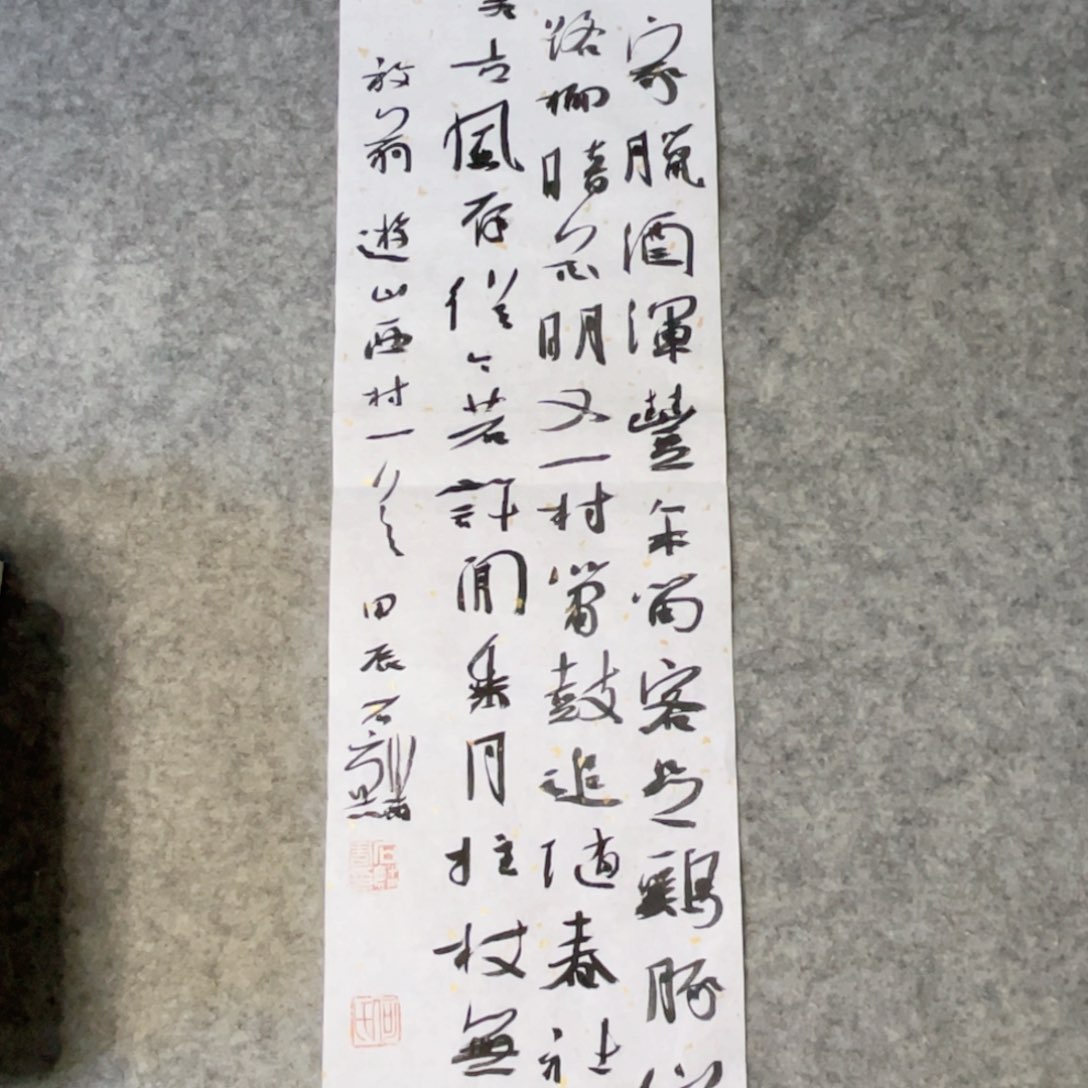 家臘酒渾豐年留客足鷄豚
路柳暗花明又一村簫鼓追隨春社
古風存從今若許閒乘月拄杖無
放翁 遊山西村一首 甲辰